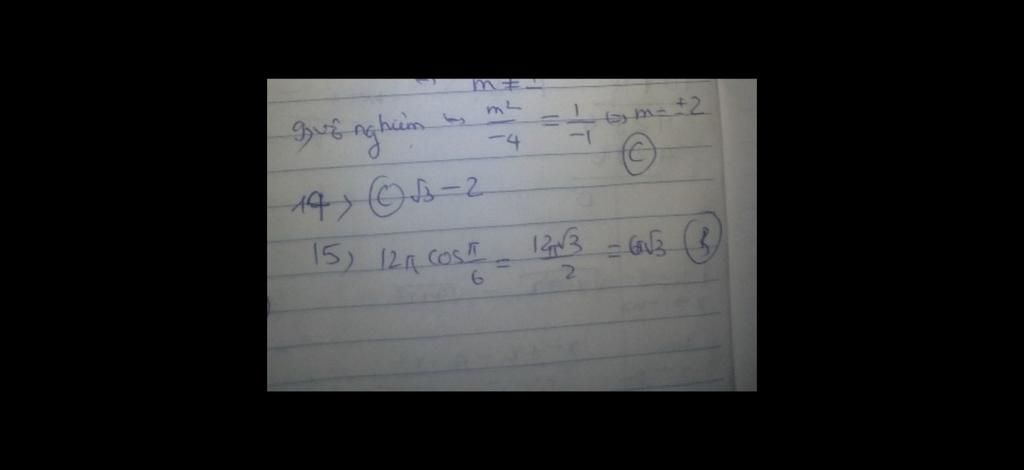 m ≠ 1
vô nghiệm ↔ m²/-4 = 1/-1 ⇔ m = ±2
C
14> C √3 - 2
15) 12π cos π/6 = 12π√3/2 = 6π√3 B